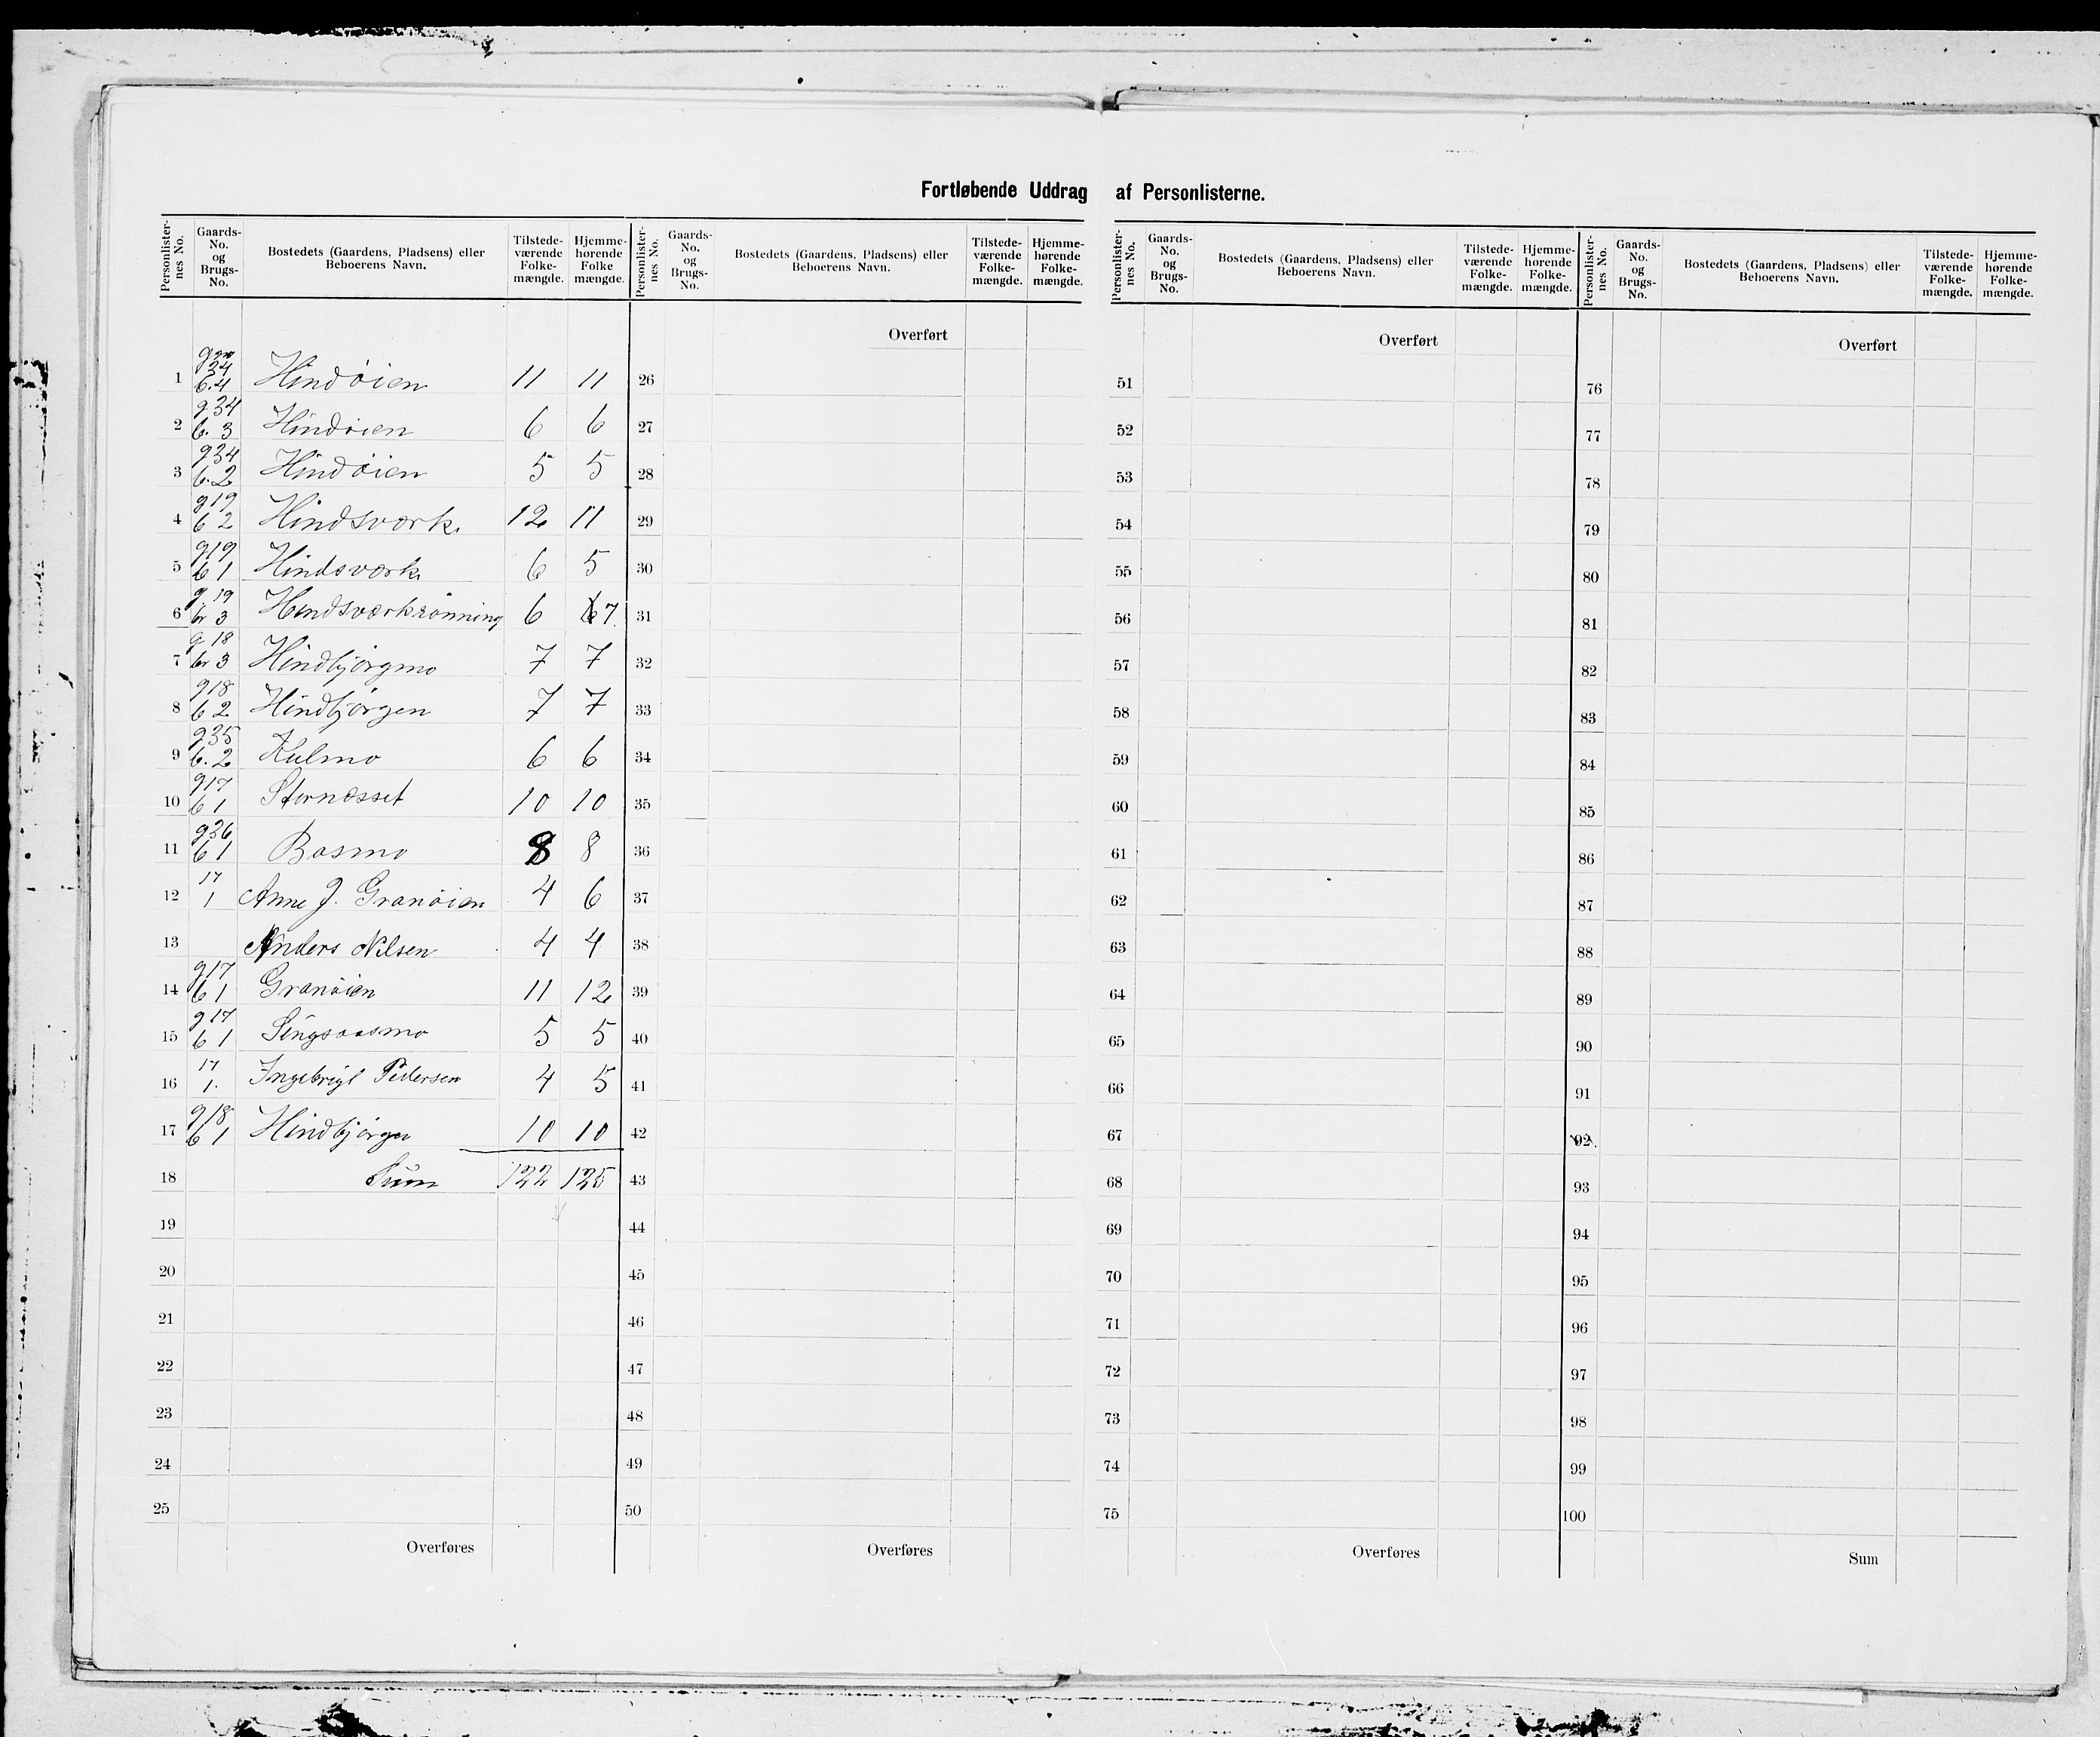 Fortløbende Uddrag af Personlisterne.
Personlister-nes No. Gaards-No. og Brugs-No. Bostedets (Gaardens, Pladsens) eller Beboerens Navn. Tilstede-værende Folke-mængde. Hjemme-hørende Folke mængde.
1 34 b.4 Hindöien 11 11
2 g 34 b. 3 Hindöien 6 6
3 g 34 b. 2 Hindöien 5 5
4 g 19 b 2 Hindsværk. 12 11
5 g 19 b 1 Hindsværk 6 5
6 g 19 br 3 Hindsværkrönning 6 7.
7 g 18 br 3 Hindbjörgmo 7 7
8 g 18 b 2 Hindbjörgen 7 7
9 g 35 b. 2 Kulmo 6 6
10 g 17 b 1 Stornæsset 10 10
11 g 36 b 1 Bosmo 8 8
12 17 1 Anne J. Granöien 4 6
13 Anders Nilsen 4 4
14 g 17 b 1 Granöien 11 12
15 g 17 b 1 Singsaasmo 5 5
16 17 1. Ingebrigt Pedersen 4 5
17 g 18 b 1 Hindbjörgen 10 10
18 Sum 122 125
19
20
21
22
23
24
25
Overføres
Personlister-nes No. Gaards-No. og Brugs-No. Bostedets (Gaardens, Pladsens) eller Beboerens Navn. Tilstede-værende Folke-mængde. Hjemme-hørende Folke-mængde.
Overført
26
27
28
29
30
31
32
33
34
35
36
37
38
39
40
41
42
43
44
45
46
47
48
49
50
Overføres
Personlister-nes No. Gaards-No. og Brugs-No. Bostedets (Gaardens, Pladsens) eller Beboerens Navn. Tilstede-værende Folke-mængde. Hjemme-hørende Folke-mængde.
Overført
51
52
53
54
55
56
57
58
59
60
61
62
63
64
65
66
67
68
69
70
71
72
73
74
75
Overføres
Personlister-nes No. Gaards-No. og Brugs-No. Bostedets (Gaardens, Pladsens) eller Beboerens Navn. Tilstede-værende Folke-mængde. Hjemme-hørende Folke-mængde.
Overført
76
77
78
79
80
81
82
83
84
85
86
87
88
89
90
91
92
93
94
95
96
97
98
99
100
Sum